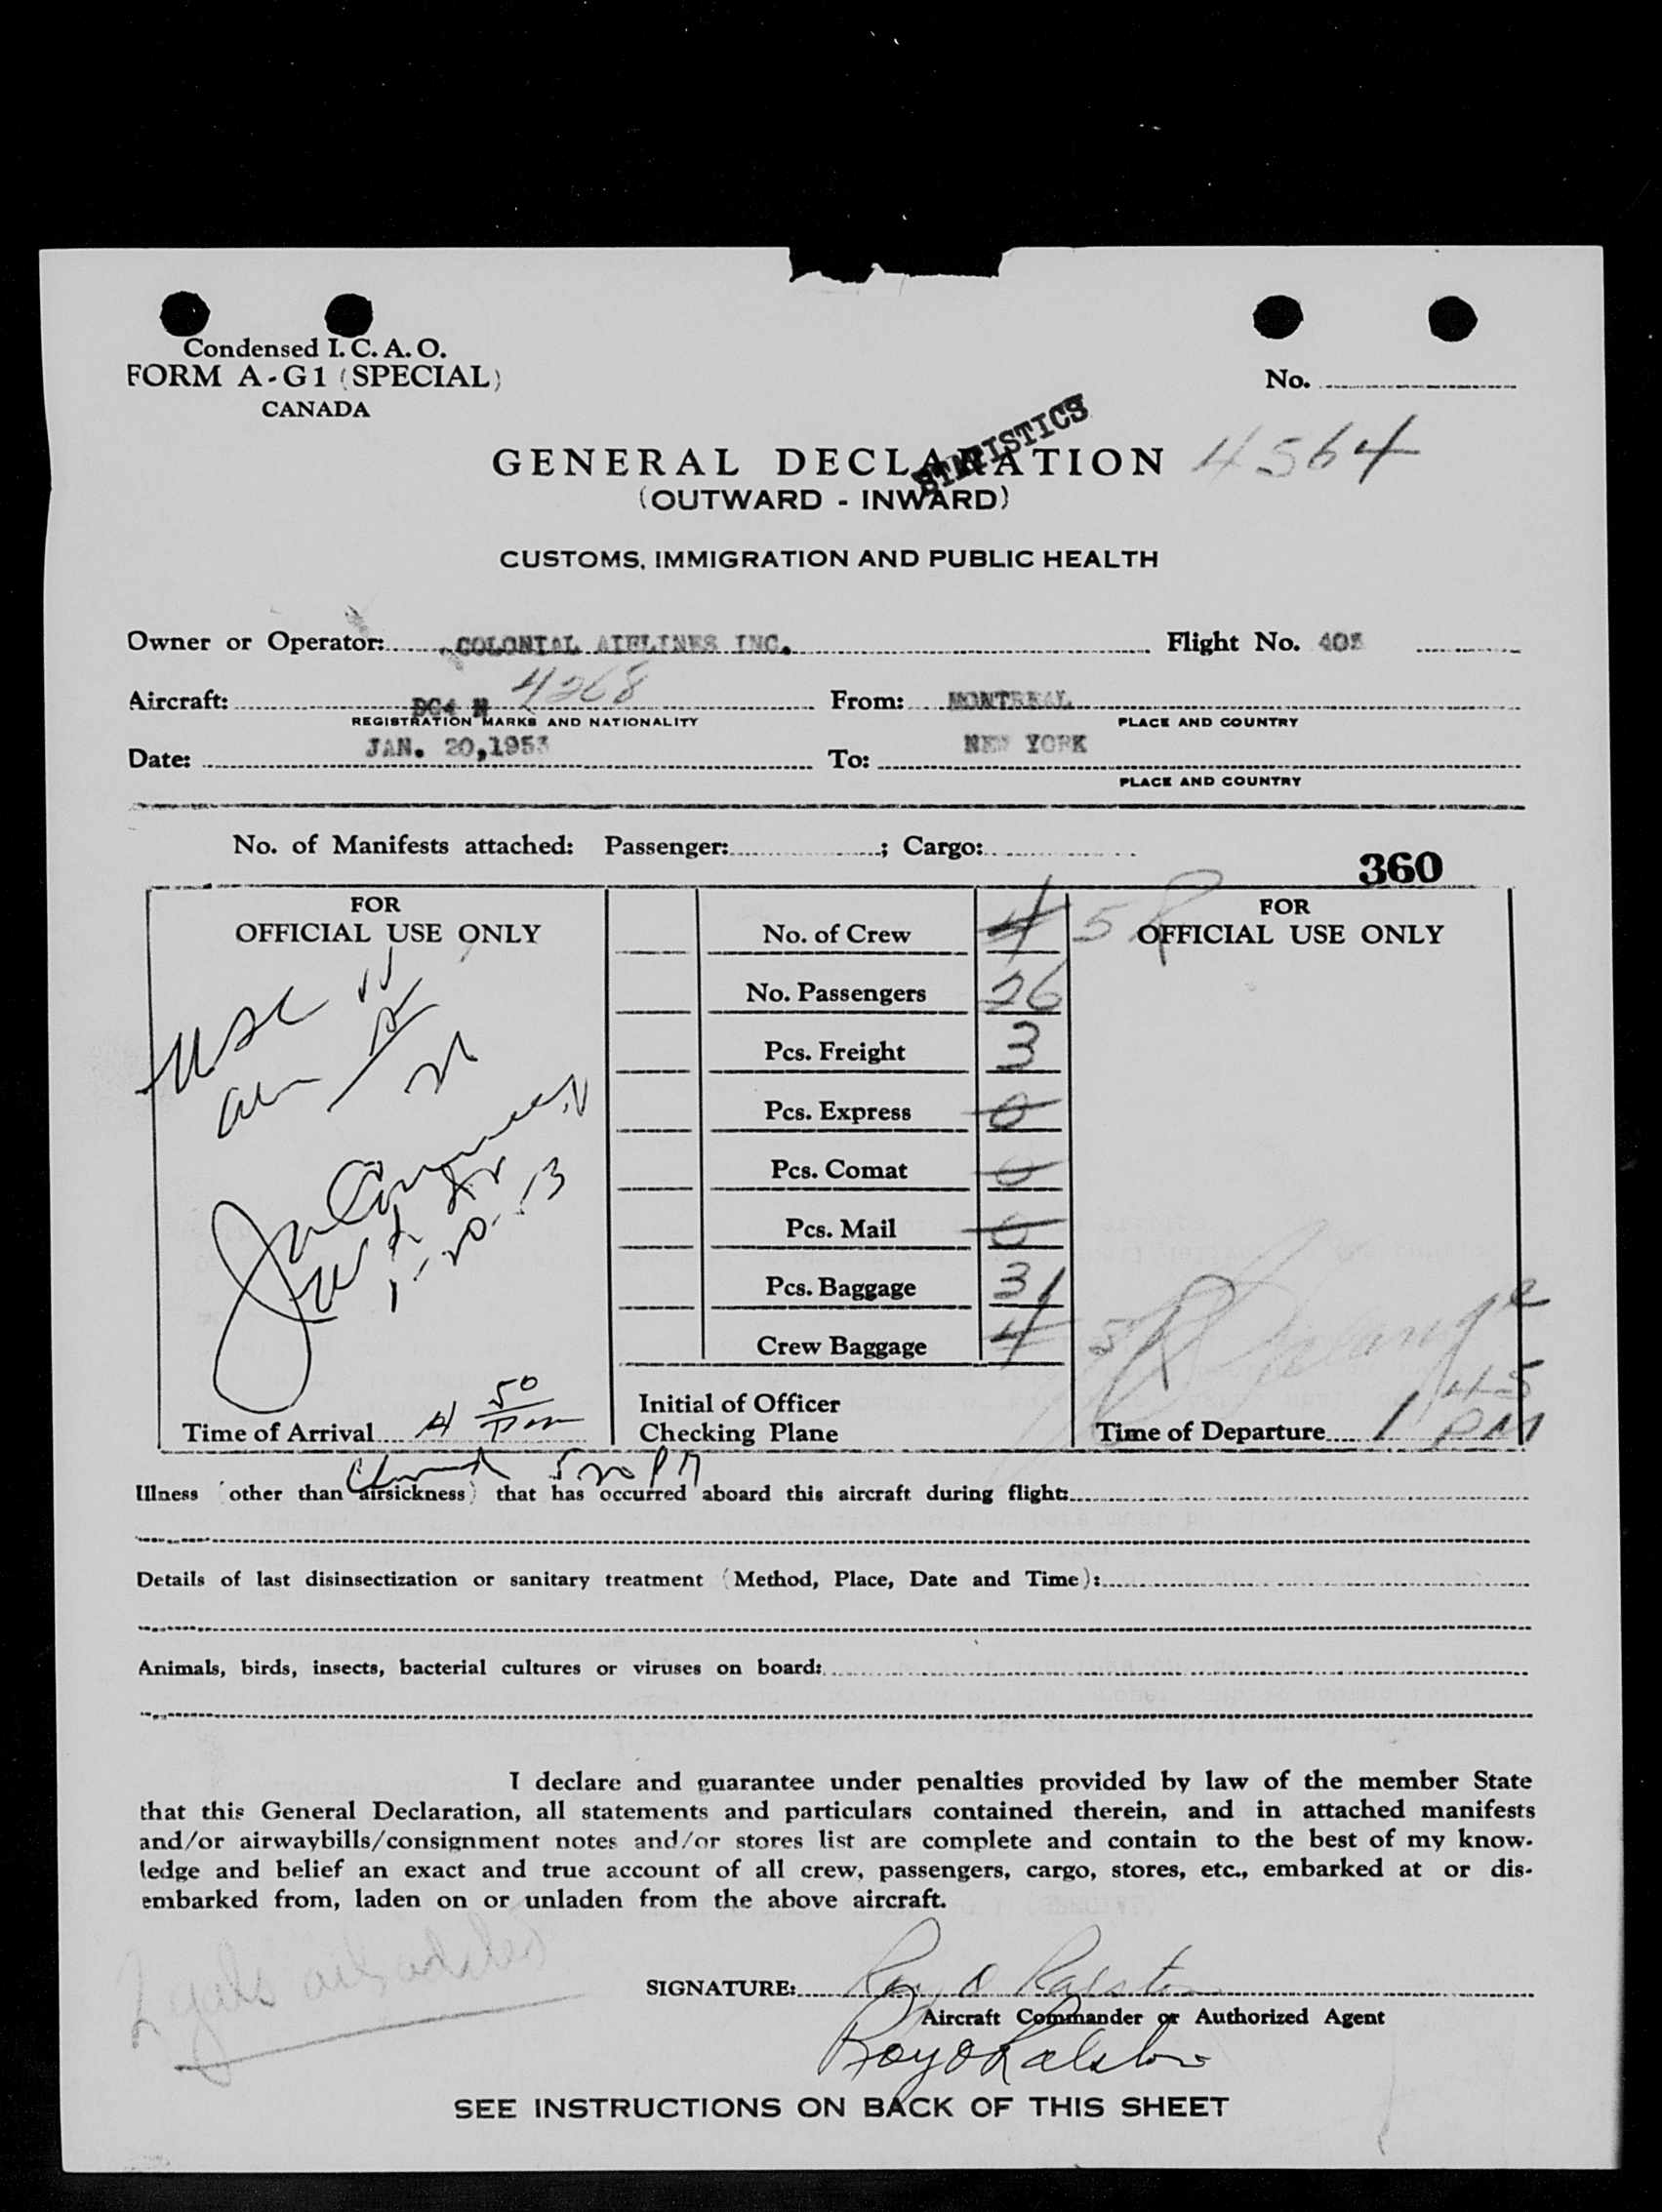 Condensed I. C. A. O.
FORM A-G1 (SPECIAL)
CANADA
No.
STATISTICS
GENERAL DECLARATION 4564
(OUTWARD - INWARD)
CUSTOMS, IMMIGRATION AND PUBLIC HEALTH
Owner or Operator: COLONIAL AIRLINES INC. Flight No. 403
Aircraft: DC4 N 4268 From: MONTREAL
REGISTRATION MARKS AND NATIONALITY PLACE AND COUNTRY
Date: JAN. 20,1953 To: NEW YORK
PLACE AND COUNTRY
No. of Manifests attached: Passenger: ; Cargo:
360
FOR
OFFICIAL USE ONLY
USC 11
1-20-53
Time of Arrival 4 50 Pm
No. of Crew 4 5
No. Passengers 26
Pcs. Freight 3
Pcs. Express 0
Pcs. Comat 0
Pcs. Mail 0
Pcs. Baggage 31
Crew Baggage 4 5
Initial of Officer
Checking Plane
FOR
OFFICIAL USE ONLY
Time of Departure 1 45 PM
520 PM
Illness (other than airsickness) that has occurred aboard this aircraft during flight:
Details of last disinsectization or sanitary treatment (Method, Place, Date and Time):
Animals, birds, insects, bacterial cultures or viruses on board:
I declare and guarantee under penalties provided by law of the member State
that this General Declaration, all statements and particulars contained therein, and in attached manifests
and/or airwaybills/consignment notes and/or stores list are complete and contain to the best of my know-
ledge and belief an exact and true account of all crew, passengers, cargo, stores, etc., embarked at or dis-
embarked from, laden on or unladen from the above aircraft.
SIGNATURE: Roy O Ralston
Aircraft Commander or Authorized Agent
Roy O Ralston
SEE INSTRUCTIONS ON BACK OF THIS SHEET